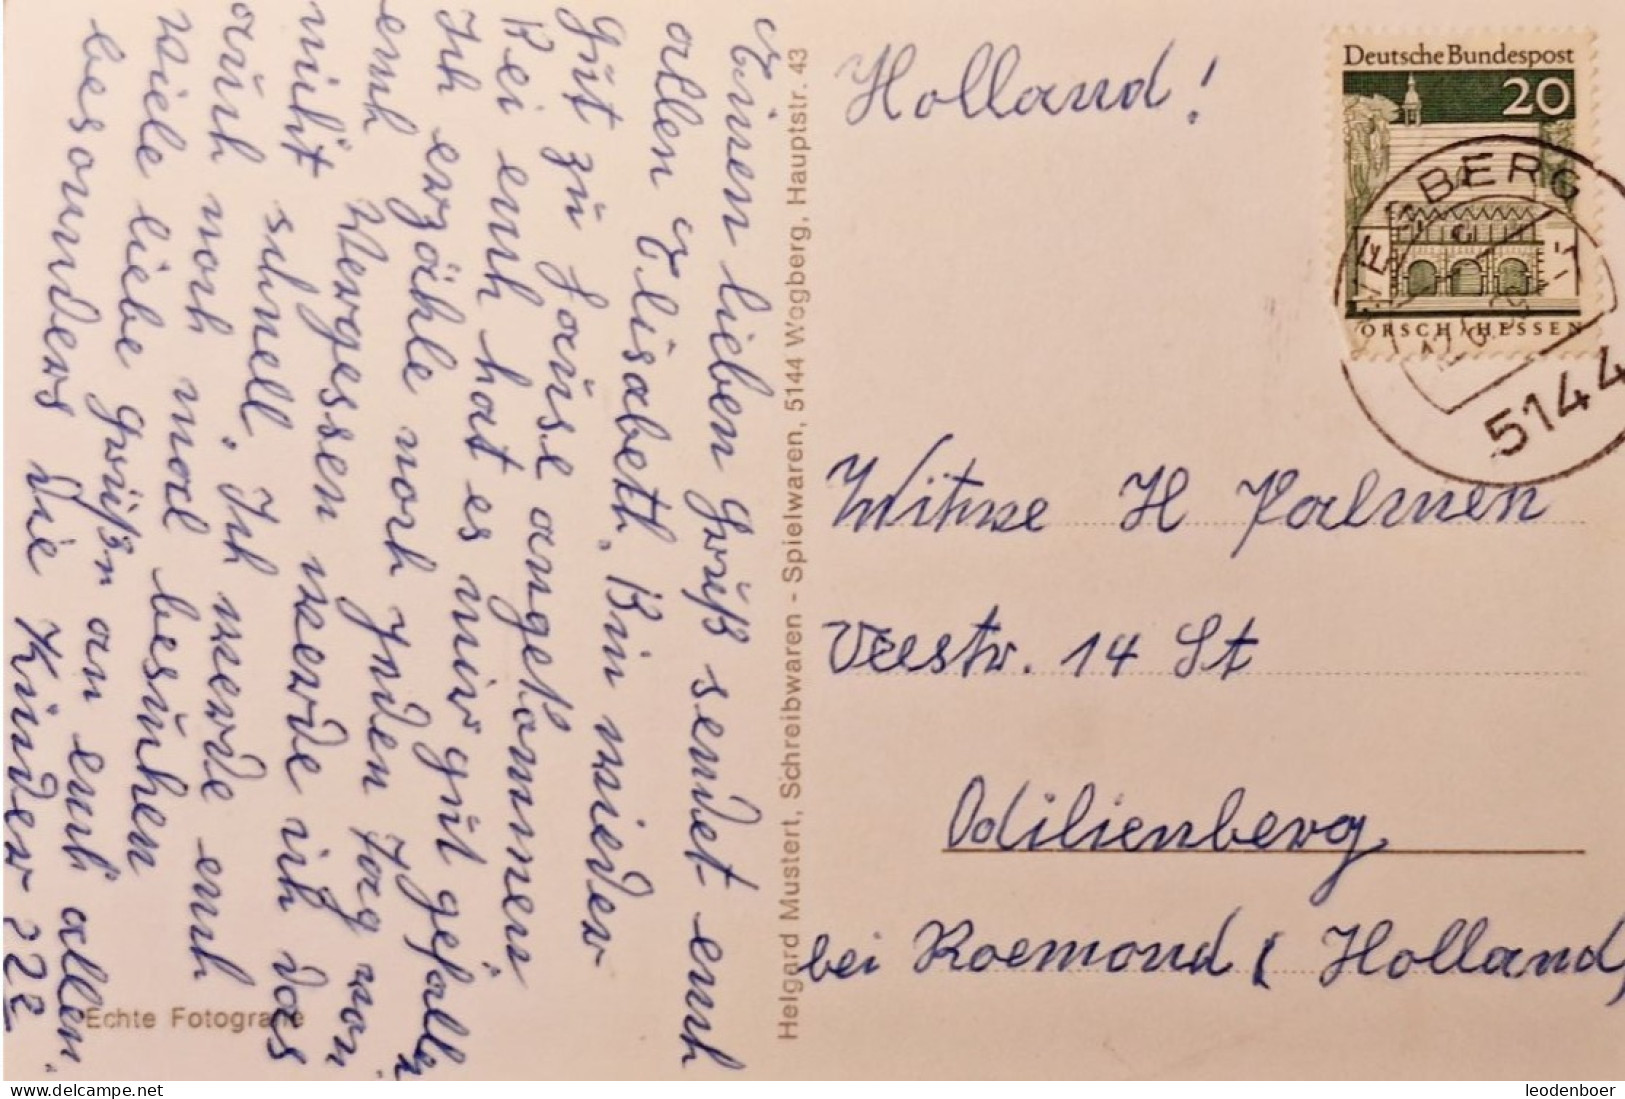 Einen lieben Grüß sendet euch
allen Elisabeth. Bin wieder
güt zü Haüse angekommen.
Bei euch hat es mir güt gefallen
Ich erzähle noch Jeden Tag von
euch Vergessen werde ich das
nicht schnell. Ich werde euch
auch noch mal besüchen
Viele liebe Grüßn an euch allen.
besonders die Kinder
Echte Fotografie
Helgard Mustert, Schreibwaren - Spielwaren, 5144 Wegberg, Hauptstr. 43
Holland!
Deutsche Bundespost
20
LORSCH/HESSEN
BERG
5144
Witwe H Palmen
Veestr. 14 St
Odilienberg
bei Roemond (Holland)
leodenboer
delcampe.net